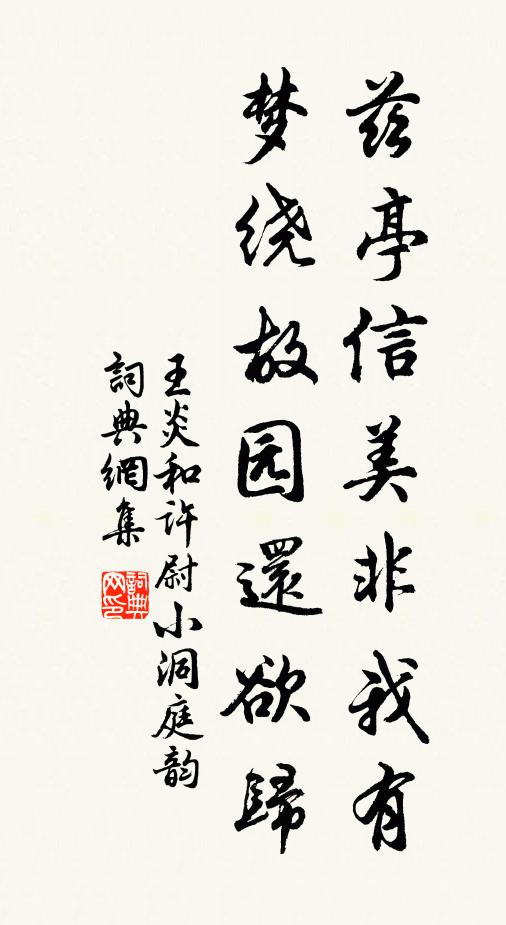 茲亭信美非我有
梦绕故园還欲歸
王炎和许尉小洞庭韵
詞典網集
詞典网印